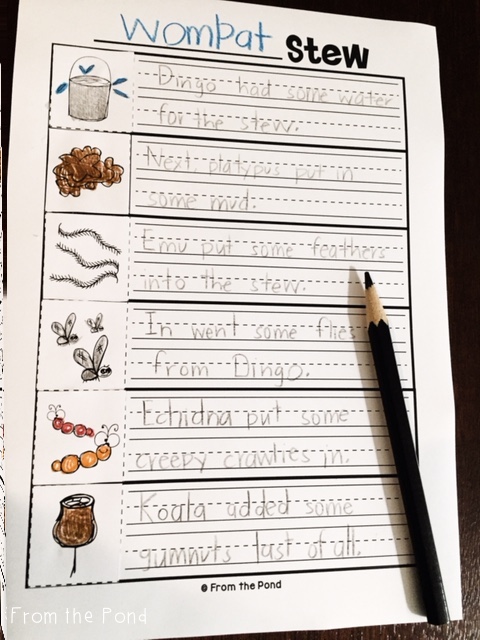 Wombat Stew
Dingo had some water
for the stew.
Next, platypus put in
some mud.
Emu put some feathers
into the stew.
In went some flies
from Dingo.
Echidna put some
creepy crawlies in.
Koala added some
gumnuts last of all.
© From the Pond
From the Pond